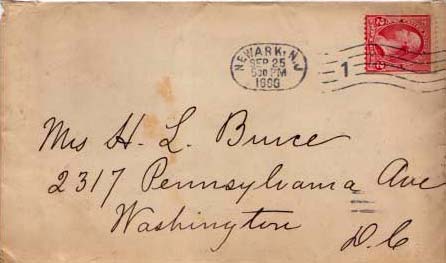 NEWARK, N.J
SEP 25
5 30 PM
1
2
2
Mrs H. L. Bruce
2317 Pennsylvania Ave
Washington
D.C